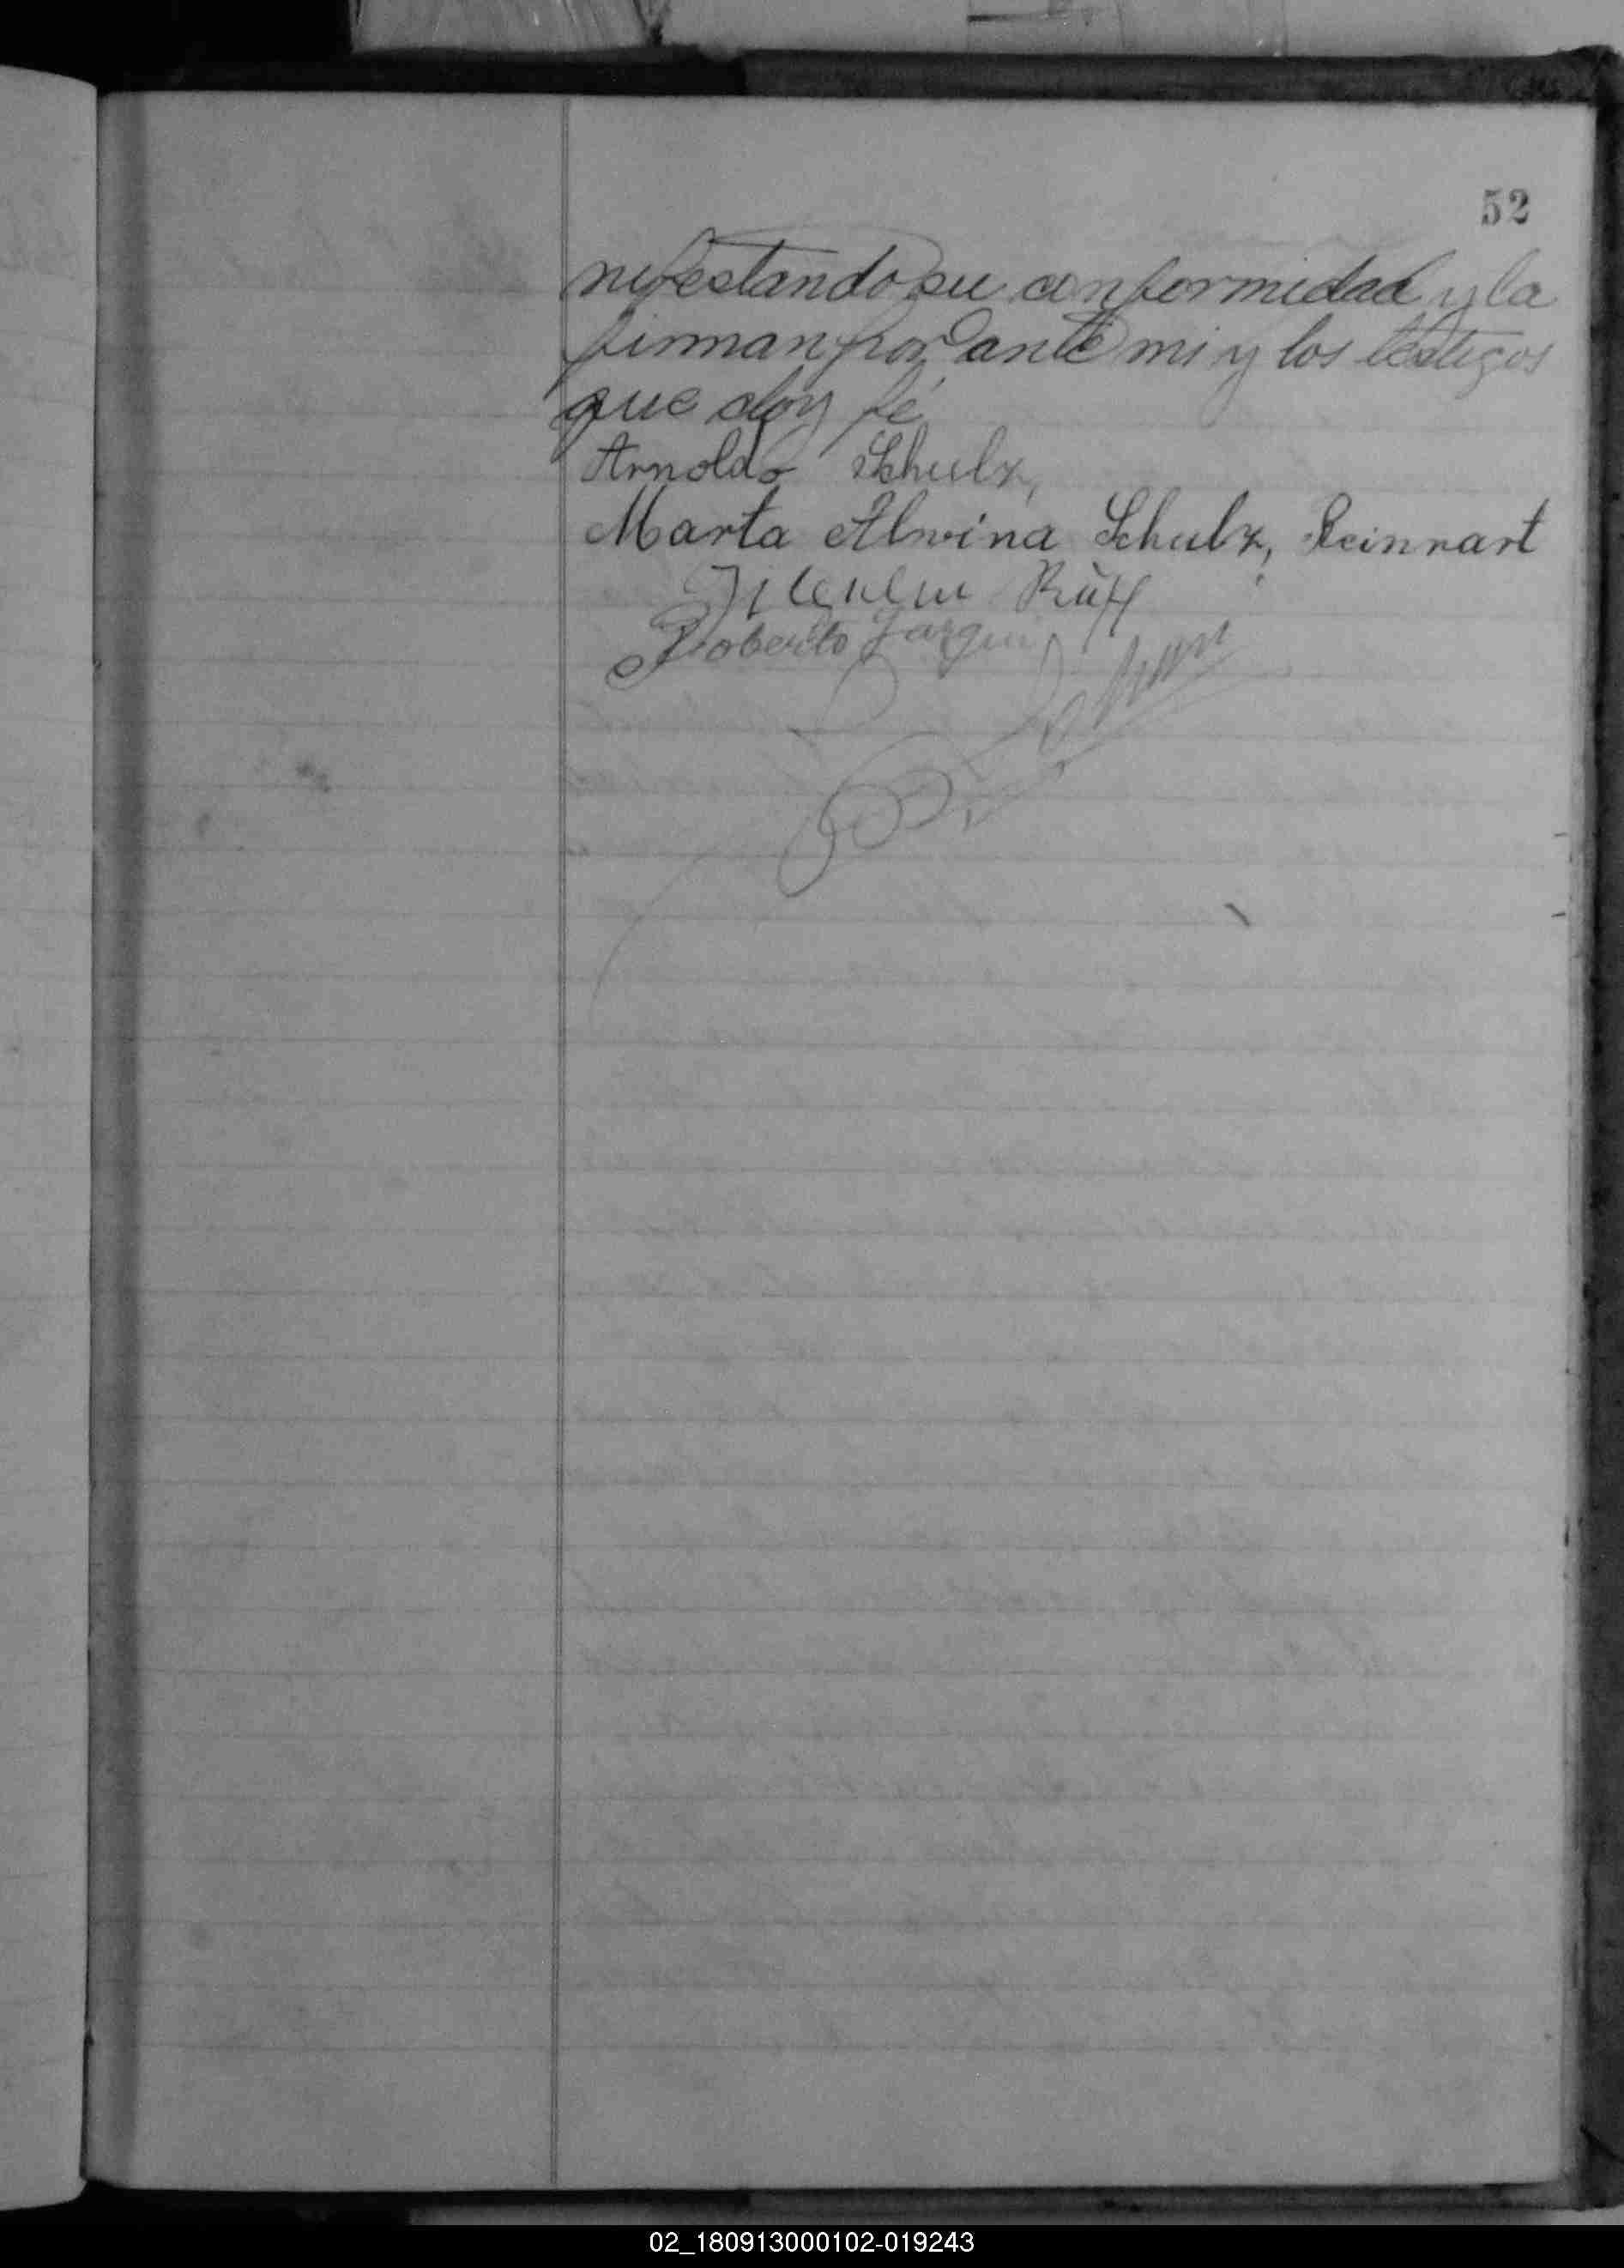 52
nifestando su conformidad y la
firman por ante mi y los testigos
que doy fé
Arnoldo Schulz,
Marta Alwina Schulz, Reinnart
Rüff
Roberto
02_180913000102-019243